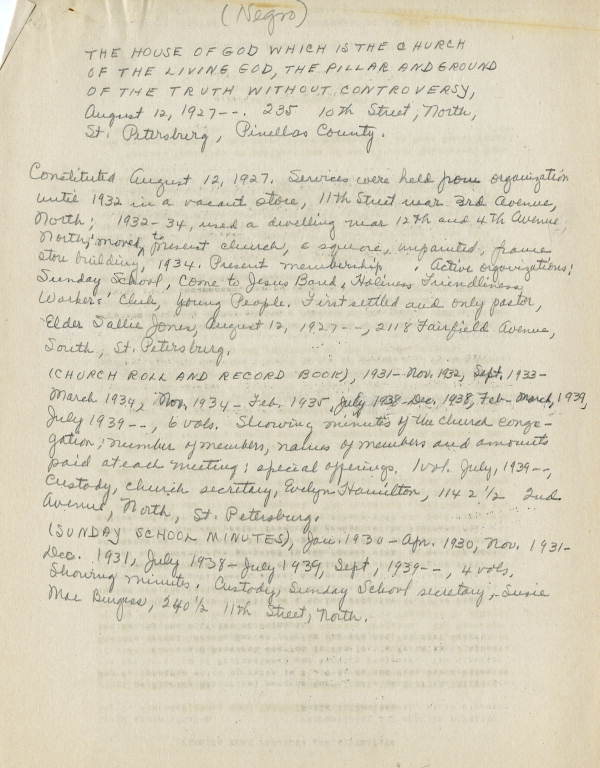 (Negro)
THE HOUSE OF GOD WHICH IS THE CHURCH
OF THE LIVING GOD, THE PILLAR AND GROUND
OF THE TRUTH WITHOUT CONTROVERSY,
August 12, 1927--. 235 10th Street, North,
St. Petersburg, Pinellas County.
Constituted August 12, 1927. Services were held from organization
until 1932 in a vacant store, 11th Street near 3rd Avenue,
North; 1932-34, used a dwelling near 12th and 4th Avenue,
North; moved to present church, a square, unpainted, frame
store building, 1934. Present membership . Active organizations:
Sunday School, Come to Jesus Band, Holiness Friendliness
Workers' Club, Young People. First settled and only pastor,
Elder Sallie Jones, August 12, 1927--, 2118 Fairfield Avenue,
South, St. Petersburg.
(CHURCH ROLL AND RECORD BOOK), 1931-Nov. 1932, Sept. 1933-
March 1934, Nov. 1934-Feb. 1935, July 1938-Dec. 1938, Feb-March, 1939,
July 1939--, 6 vols. Showing minutes of the church congre-
gation; number of members, names of members and amounts
paid at each meeting; special offerings. 1 vol. July, 1939--,
Custody, church secretary, Evelyn Hamilton, 1142 1/2 2nd
Avenue, North, St. Petersburg.
(SUNDAY SCHOOL MINUTES), Jan. 1930-Apr. 1930, Nov. 1931-
Dec. 1931, July 1938-July 1939, Sept, 1939--, 4 vols.
Showing minutes. Custody, Sunday School secretary, Susie
Mae Burgess, 240 1/2 11th Street, North.